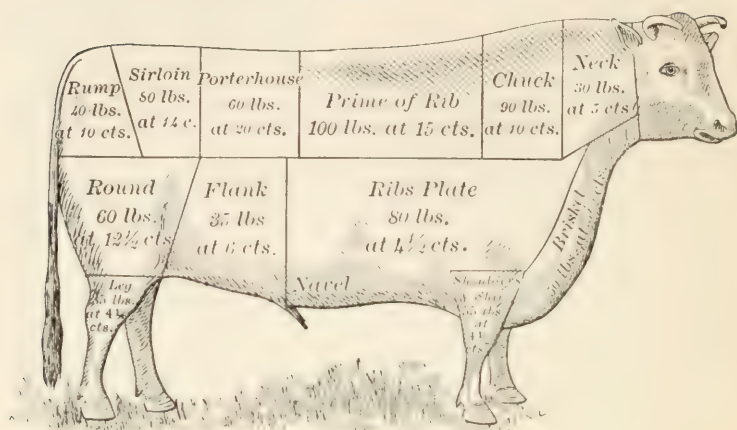 Rump
40 lbs.
at 10 cts.
Sirloin
80 lbs.
at 14 c.
Porterhouse
60 lbs.
at 20 cts.
Prime of Rib
100 lbs. at 15 cts.
Chuck
90 lbs.
at 10 cts.
Neck
30 lbs.
at 5 cts.
Round
60 lbs.
at 12½ cts.
Flank
35 lbs
at 6 cts.
Ribs Plate
80 lbs.
at 4½ cts.
Brisket
lbs. at cts.
Navel
Leg
lbs.
at
cts.
Shin
lbs
at
cts.